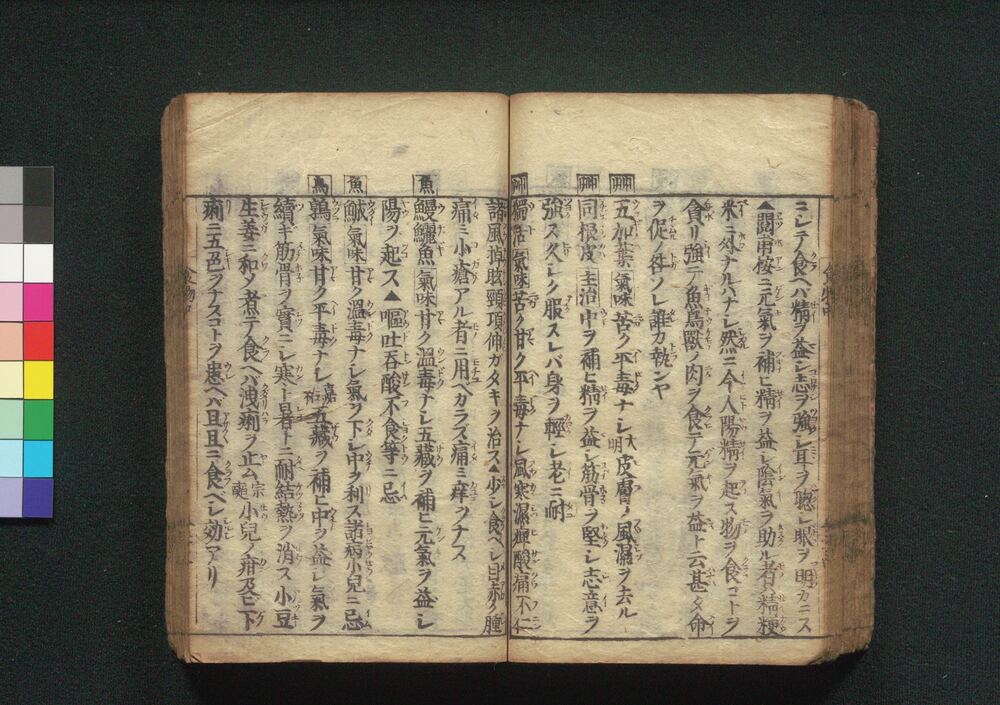 ニシテ食ヘバ精ヲ益シ志ヲ強シ耳ヲ聰シ眼ヲ明カニス
▲閻甫按ニ元氣ヲ補ヒ精ヲ益シ陰氣ヲ助ル者ハ精粳
米ニ外ナルハナシ然ニ今人陽精ヲ起ス物ヲ食コトヲ
貪リ強テ魚鳥獸ノ肉ヲ食テ元氣ヲ益ト云甚タ命
ヲ促ノ咎ソレ誰カ執ンヤ
五加葉 氣味 苦ク平毒ナシ 大明 皮膚ノ風濕ヲ去ル
同根皮 主治 中ヲ補ヒ精ヲ益シ筋骨ヲ堅シ志意ヲ
強ス久シク服スレバ身ヲ輕シ老ニ耐
獨活 氣味 苦ク甘ク平毒ナシ風寒濕痺酸痛不仁
諸風掉眩頸項伸ガタキヲ治ス▲少シ食ベシ目赤ク腫
痛ミ小瘡アル者ニ用ベカラス痛ミ痒ヲナス
魚 鰻鱺魚 氣味 甘ク溫毒ナシ五藏ヲ補ヒ元氣ヲ益シ
陽ヲ起ス▲嘔吐呑酸不食等ニ忌
魚 鯎 氣味 甘ク溫毒ナシ氣ヲ下シ中ヲ利ス諸病小兒ニ忌
鳥 鶉 氣味 甘ク平毒ナシ 嘉祐 五藏ヲ補ヒ中ヲ益シ氣ヲ
續キ筋骨ヲ實ニシ寒ト暑トニ耐結熱ヲ消ス小豆
生姜ニ和メ煮テ食ヘバ洩痢ヲ止ム 宗奭 小兒ノ疳及ヒ下
痢ニ五色ヲナスコトヲ患ヘバ旦旦ニ食ベシ効アリ